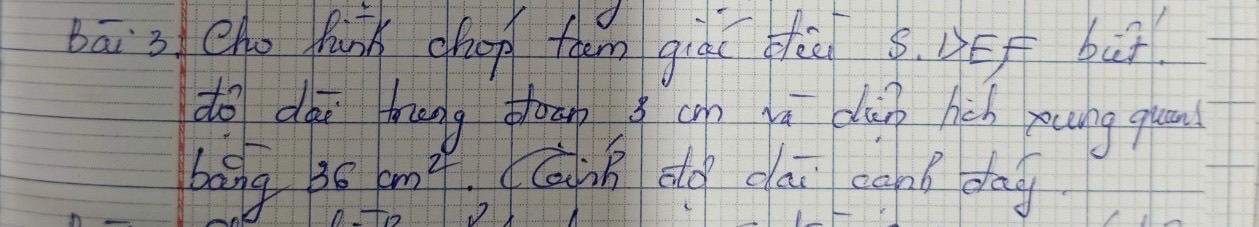 Bài 3. Cho hình chóp tam giác đều S.DEF biết
độ dài trung đoạn 3 cm và diện tích xung quanh
bằng 36 cm². Tính độ dài cạnh đáy.